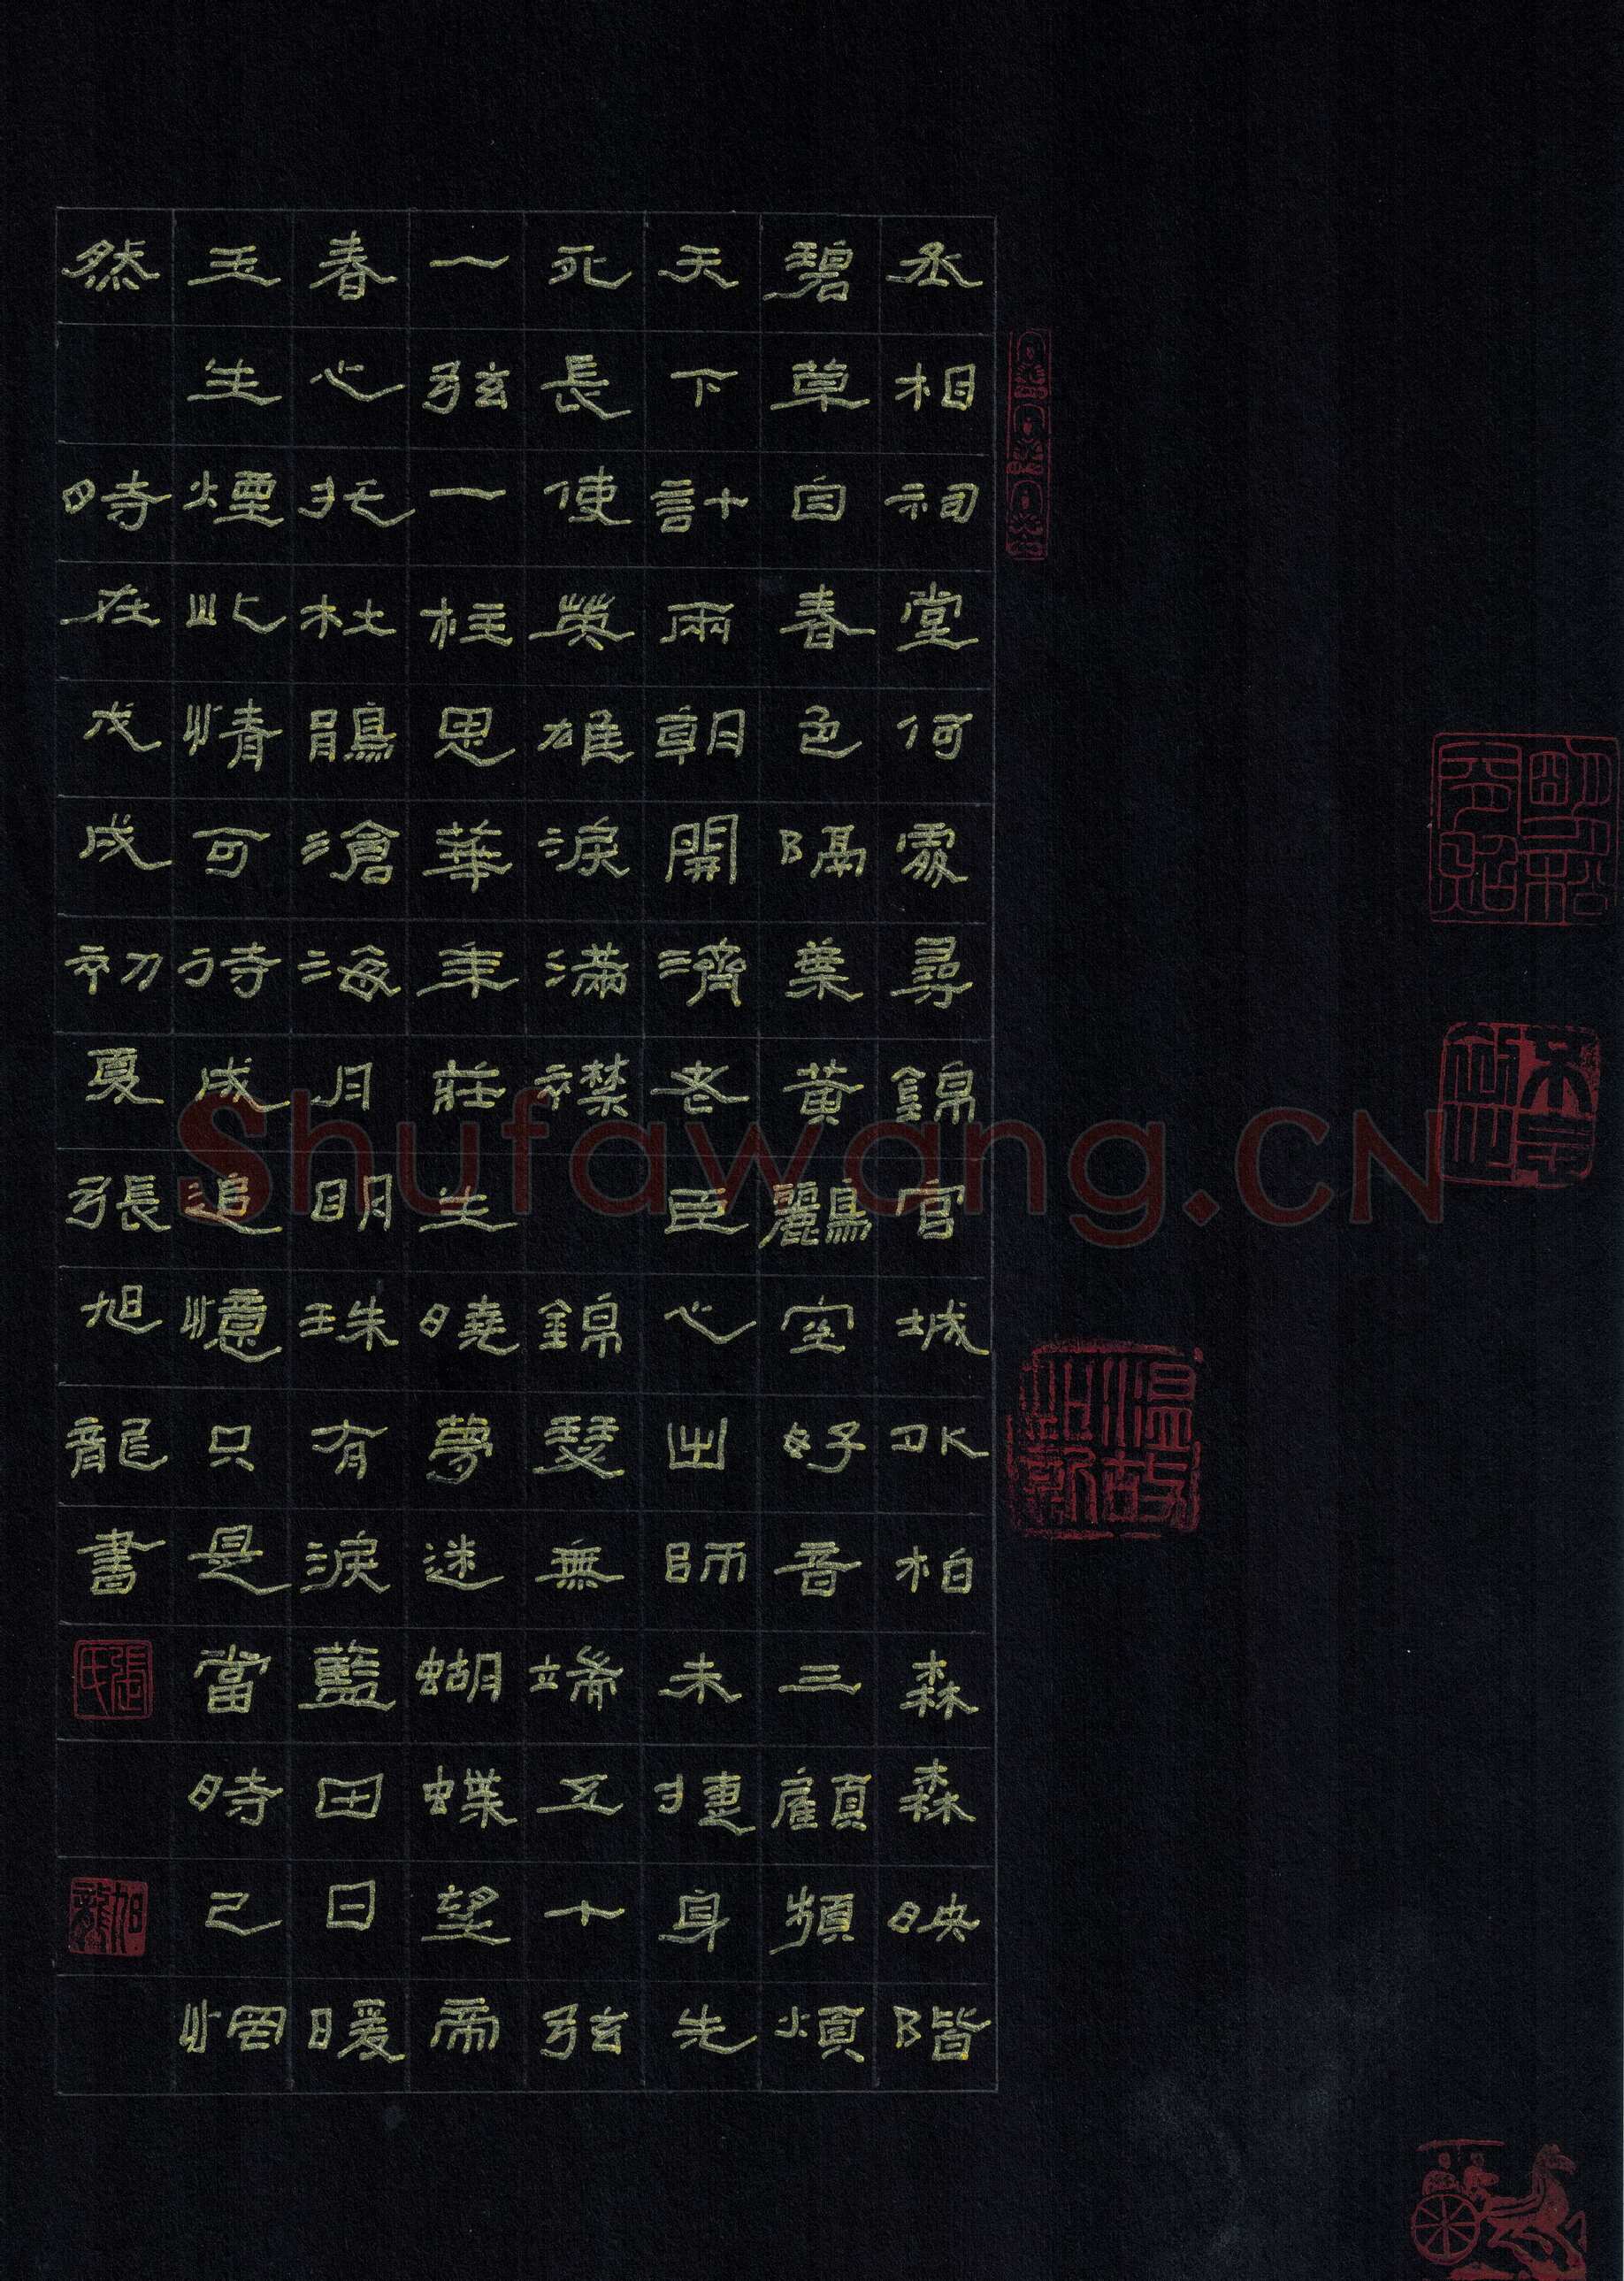 丞相祠堂何處尋錦官城水柏森森映階
碧草自春色隔葉黃鸝空好音三顧頻煩
天下計兩朝開濟老臣心出師未捷身先
死長使英雄淚滿襟 錦瑟無端五十弦
一弦一柱思華年莊生曉夢迷蝴蝶望帝
春心托杜鵑滄海月明珠有淚藍田日暖
玉生煙此情可待成追憶只是當時已惘
然 時在戊戌初夏張旭龍書
張氏
旭龍
溫故知新
Shufawang.CN